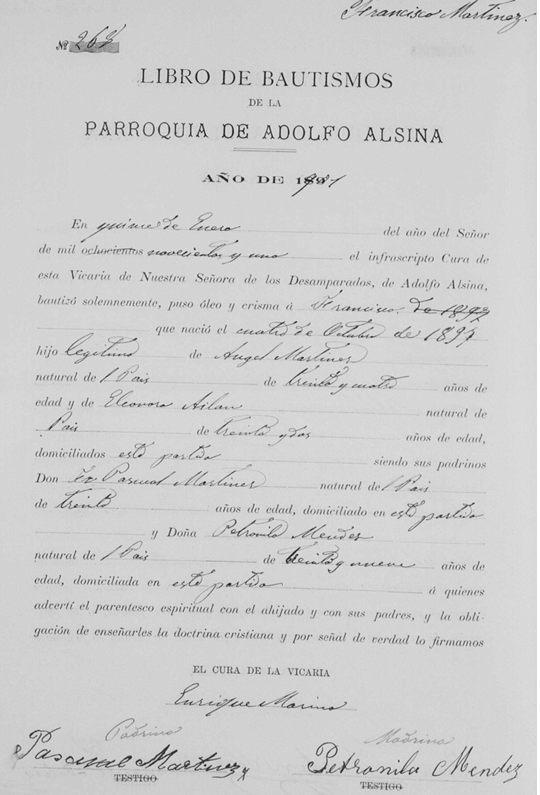 Francisco Martinez.
Nº 268
LIBRO DE BAUTISMOS
DE LA
PARROQUIA DE ADOLFO ALSINA
AÑO DE 1901
En quince de Enero del año del Señor
de mil ochocientos novecientos y uno el infrascripto Cura de
esta Vicaria de Nuestra Señora de los Desamparados, de Adolfo Alsina,
bautizó solemnemente, puso óleo y crisma á Francisco de 1897
que nació el cuatro de Octubre de 1897
hijo legitimo de Angel Martinez
natural de l Pais de treinta y cuatro años de
edad y de Eleonora natural de
Pais de treinta y dos años de edad,
domiciliados este partido siendo sus padrinos
Don Pascual Martinez natural de l Pais
de treinta años de edad, domiciliado en este partido
y Doña Petronila Mendez
natural de l Pais de treinta y nueve años de
edad, domiciliada en este partido á quienes
advertí el parentesco espiritual con el ahijado y con sus padres, y la obli-
gación de enseñarles la doctrina cristiana y por señal de verdad lo firmamos
EL CURA DE LA VICARIA
Enrique Marino
Padrino Madrina
Pascual Martinez Petronila Mendez
TESTIGO TESTIGO